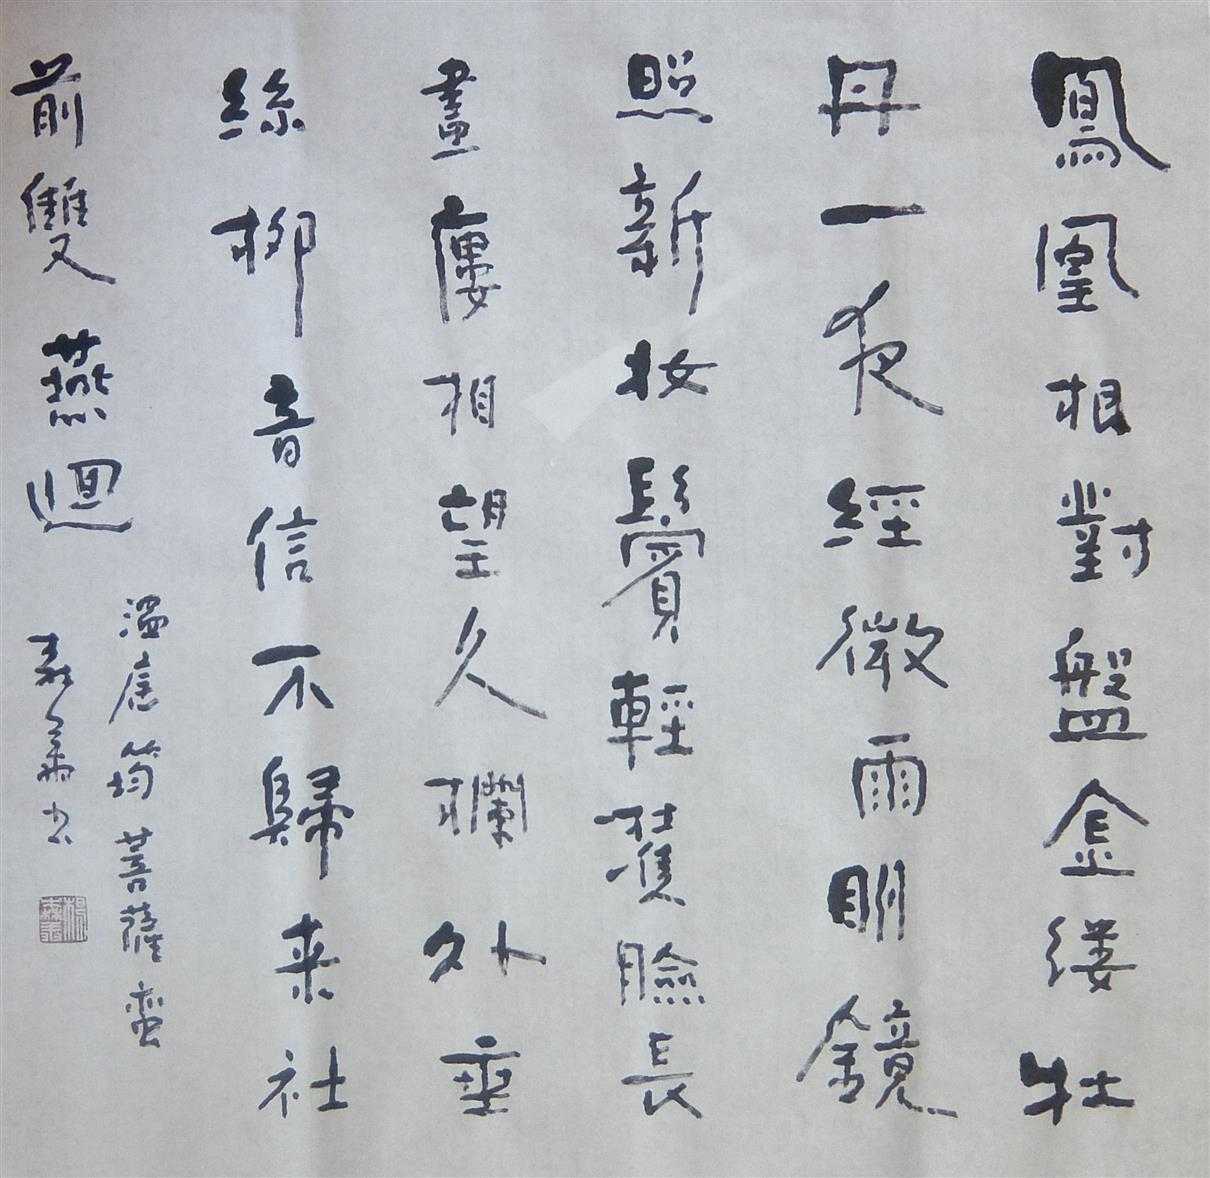 鳳凰根對盤金缕牡
丹一夜經微雨明鏡
照新妆鬢輕雙臉長
畫廔相望久欄外垂
絲柳音信不歸来社
前雙燕迴
温庭筠菩薩蛮